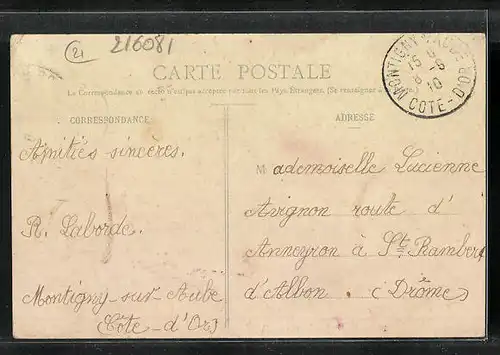 21
216081
MONTIGNY S AUBE
15 0
8 -6
10
COTE-D'OR
CARTE POSTALE
La Correspondance au recto n'est pas acceptée par tous les Pays Étrangers. (Se renseigner
CORRESPONDANCE
ADRESSE
Amitiés sincères.
R. Laborde.
Montigny-sur-Aube
(Côte-d'Or)
Mademoiselle Lucienne
Avignon route d'
Anneyron à St Rambert
d'Albon. (Drôme)